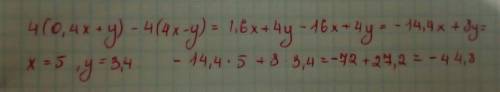 4(0,4x+y)-4(4x-y)= 1,6x+4y-16x+4y=-14,4x+8y=
x=5,y=3,4 -14,4·5+8 3,4=-72+27,2=-44,8